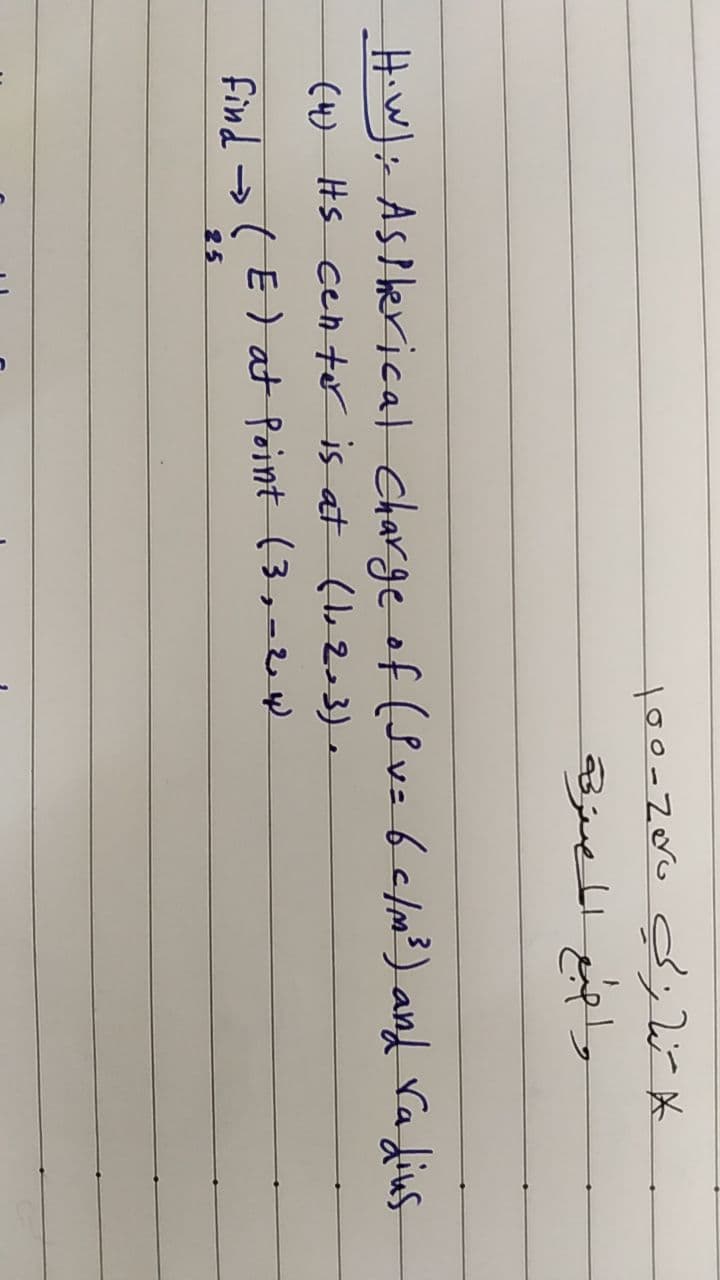 100-Zero
H.w):- A Spherical charge of (ρv=6 c/m³) and radius
(4) Its center is at (1,2,3).
find → (E) at Point (3,-2,4)
25